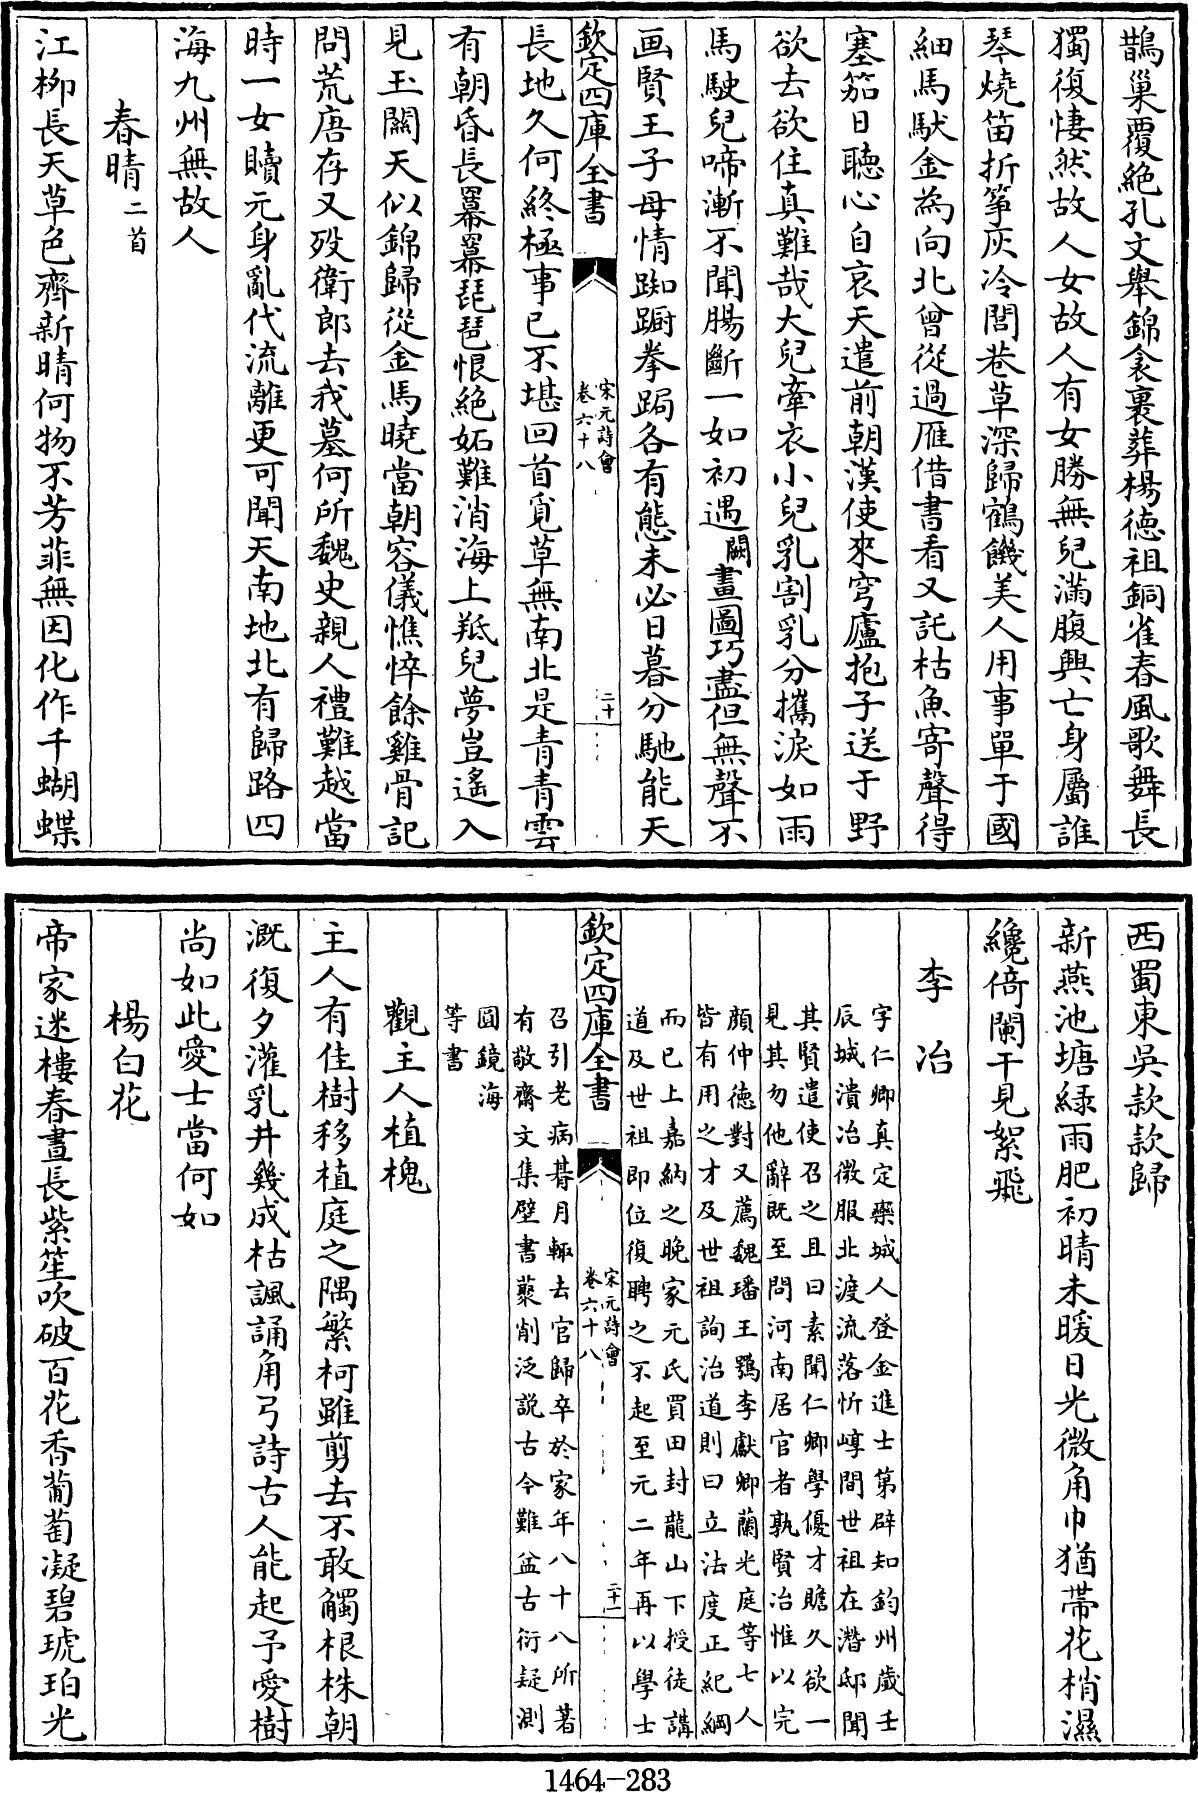 鵲巢覆絶孔文舉錦衾裏葬楊德祖銅雀春風歌舞長
獨復悽然故人女故人有女勝無兒滿腹興亡身屬誰
琴燒笛折箏灰冷閭巷草深歸鶴饑美人用事單于國
細馬馱金為向北曾從過雁借書看又託枯魚寄聲得
塞笳日聽心自哀天遣前朝漢使來穹廬抱子送于野
欲去欲住真難哉大兒牽衣小兒乳割乳分攜淚如雨
馬駛兒啼漸不聞腸斷一如初遇闕畫圖巧盡但無聲不
画賢王子母情踟蹰拳跼各有態未必日暮分馳能天
欽定四庫全書
宋元詩會
卷六十八
二十
長地久何終極事已不堪回首覓草無南北是青青雲
有朝昏長羃羃琵琶恨絶妬難消海上羝兒夢豈遙入
見玉闗天似錦歸從金馬曉當朝容儀憔悴餘雞骨記
問荒唐存又殁衛郎去我墓何所魏史親人禮難越當
時一女贖元身亂代流離更可聞天南地北有歸路四
海九州無故人
春晴二首
江栁長天草色齊新晴何物不芳菲無因化作千蝴蝶
西蜀東吳款款歸
新燕池塘緑雨肥初晴未暖日光微角巾猶帶花梢濕
纔倚闌干見絮飛
李冶
字仁卿真定欒城人登金進士第辟知鈞州歲壬
辰城潰冶微服北渡流落忻崞間世祖在潛邸聞
其賢遣使召之且曰素聞仁卿學優才贍久欲一
見其勿他辭既至問河南居官者孰賢冶惟以完
顔仲德對又薦魏璠王鶚李獻卿蘭光庭等七人
皆有用之才及世祖詢治道則曰立法度正紀綱
而已上嘉納之晚家元氏買田封龍山下授徒講
道及世祖即位復聘之不起至元二年再以學士
欽定四庫全書
宋元詩會
卷六十八
二十一
召引老病朞月輙去官歸卒於家年八十八所著
有敬齋文集壁書藂削泛説古今難益古衍疑測
圓鏡海
等書
觀主人植槐
主人有佳樹移植庭之隅繁柯雖剪去不敢觸根株朝
溉復夕灌乳井幾成枯諷誦角弓詩古人能起予愛樹
尚如此愛士當何如
楊白花
帝家迷樓春晝長紫笙吹破百花香葡萄凝碧琥珀光
1464-283